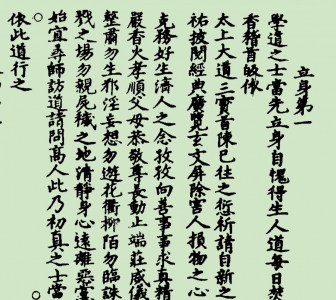 立身第一
學道之士當先立身自愧得生人道每日焚
香稽首皈依
太上大道三寶首陳已往之愆祈請自新之
祐披閱經典廣覽玄文屏除害人損物之心
克務好生濟人之念孜孜向善事事求真精
嚴香火孝順父母恭敬尊長動止端莊威儀
整肅勿生邪淫妄想勿遊花衢柳陌勿臨誅
戮之場勿親屍穢之地清靜身心遠離惡黨
始宜尋師訪道請問高人此乃初真之士當
依此道行之